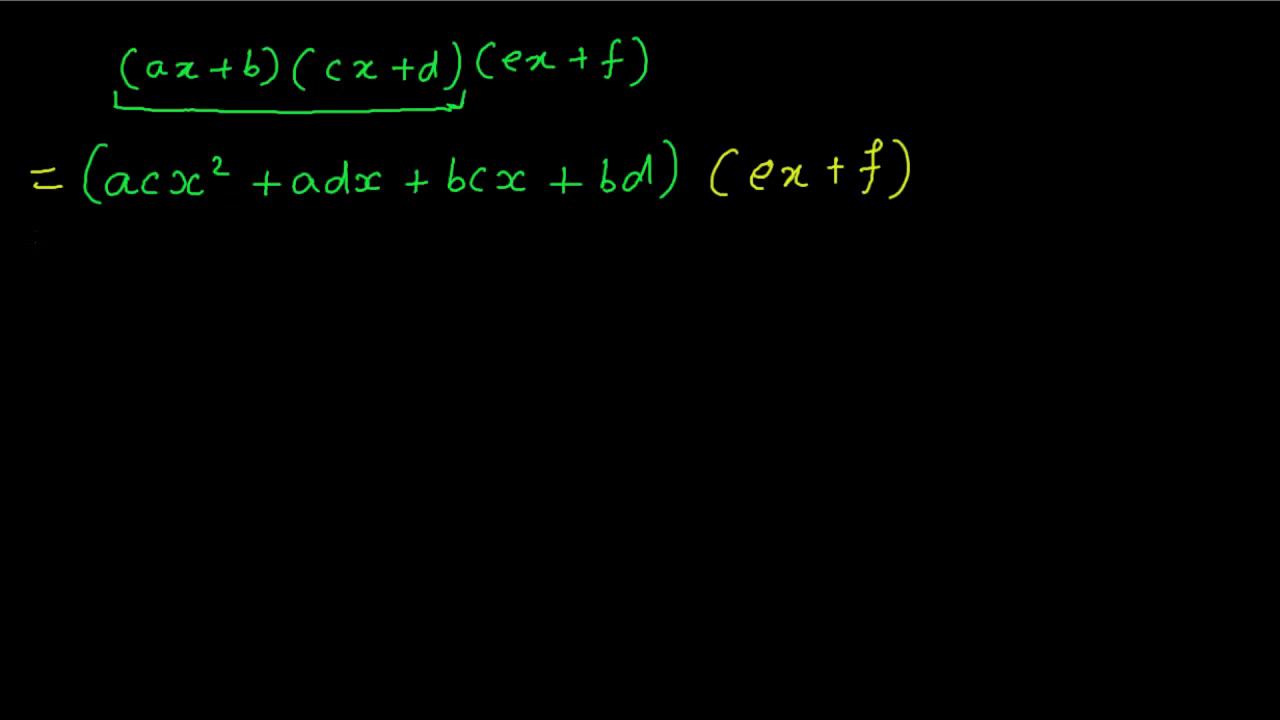 (ax+b)(cx+d)(ex+f)
= (acx² + adx + bcx + bd) (ex + f)